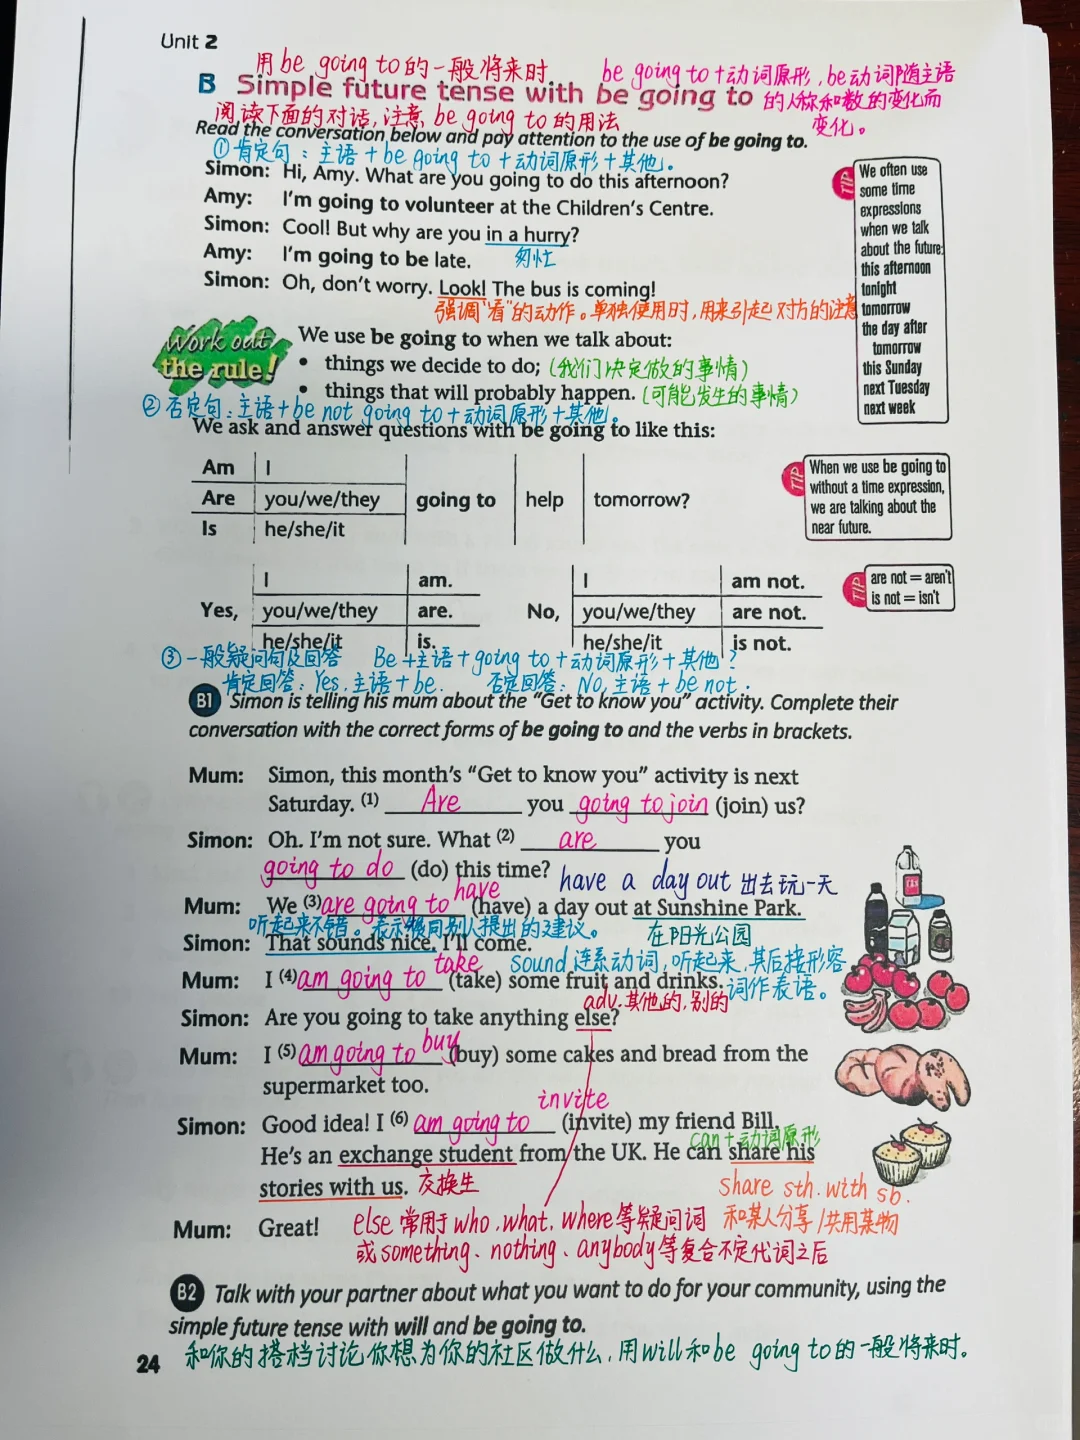 Unit 2
用be going to的一般将来时
be going to+动词原形,be动词随主语
B Simple future tense with be going to
的人称和数的变化而
变化。
阅读下面的对话,注意 be going to的用法
Read the conversation below and pay attention to the use of be going to.
①肯定句：主语+be going to+动词原形+其他。
Simon: Hi, Amy. What are you going to do this afternoon?
Amy: I'm going to volunteer at the Children's Centre.
Simon: Cool! But why are you in a hurry?
匆忙
Amy: I'm going to be late.
Simon: Oh, don't worry. Look! The bus is coming!
强调"看"的动作。单独使用时,用来引起对方的注意
TIP
We often use
some time
expressions
when we talk
about the future:
this afternoon
tonight
tomorrow
the day after
tomorrow
this Sunday
next Tuesday
next week
Work out
the rule!
We use be going to when we talk about:
• things we decide to do; (我们决定做的事情)
• things that will probably happen. (可能发生的事情)
②否定句：主语+be not going to+动词原形+其他。
We ask and answer questions with be going to like this:
Am I
Are you/we/they going to help tomorrow?
Is he/she/it
TIP
When we use be going to
without a time expression,
we are talking about the
near future.
I am. I am not.
Yes, you/we/they are. No, you/we/they are not.
he/she/it is. he/she/it is not.
TIP
are not = aren't
is not = isn't
③一般疑问句及回答 Be+主语+going to+动词原形+其他？
肯定回答：Yes,主语+be. 否定回答：No,主语+be not.
B1 Simon is telling his mum about the "Get to know you" activity. Complete their
conversation with the correct forms of be going to and the verbs in brackets.
Mum: Simon, this month's "Get to know you" activity is next
Saturday. (1) Are you going to join (join) us?
Simon: Oh. I'm not sure. What (2) are you
going to do (do) this time?
have a day out 出去玩一天
Mum: We (3) are going to have (have) a day out at Sunshine Park.
听起来不错。表示赞同别人提出的建议。
在阳光公园
Simon: That sounds nice. I'll come.
sound 连系动词,听起来,其后接形容
词作表语。
Mum: I (4) am going to take (take) some fruit and drinks.
adv.其他的,别的
Simon: Are you going to take anything else?
Mum: I (5) am going to buy (buy) some cakes and bread from the
supermarket too.
Simon: Good idea! I (6) am going to invite (invite) my friend Bill.
can+动词原形
He's an exchange student from the UK. He can share his
stories with us.
交换生
share sth. with sb.
和某人分享/共用某物
Mum: Great!
else 常用于who、what、where等疑问词
或something、nothing、anybody等复合不定代词之后
B2 Talk with your partner about what you want to do for your community, using the
simple future tense with will and be going to.
和你的搭档讨论你想为你的社区做什么,用will和be going to的一般将来时。
24